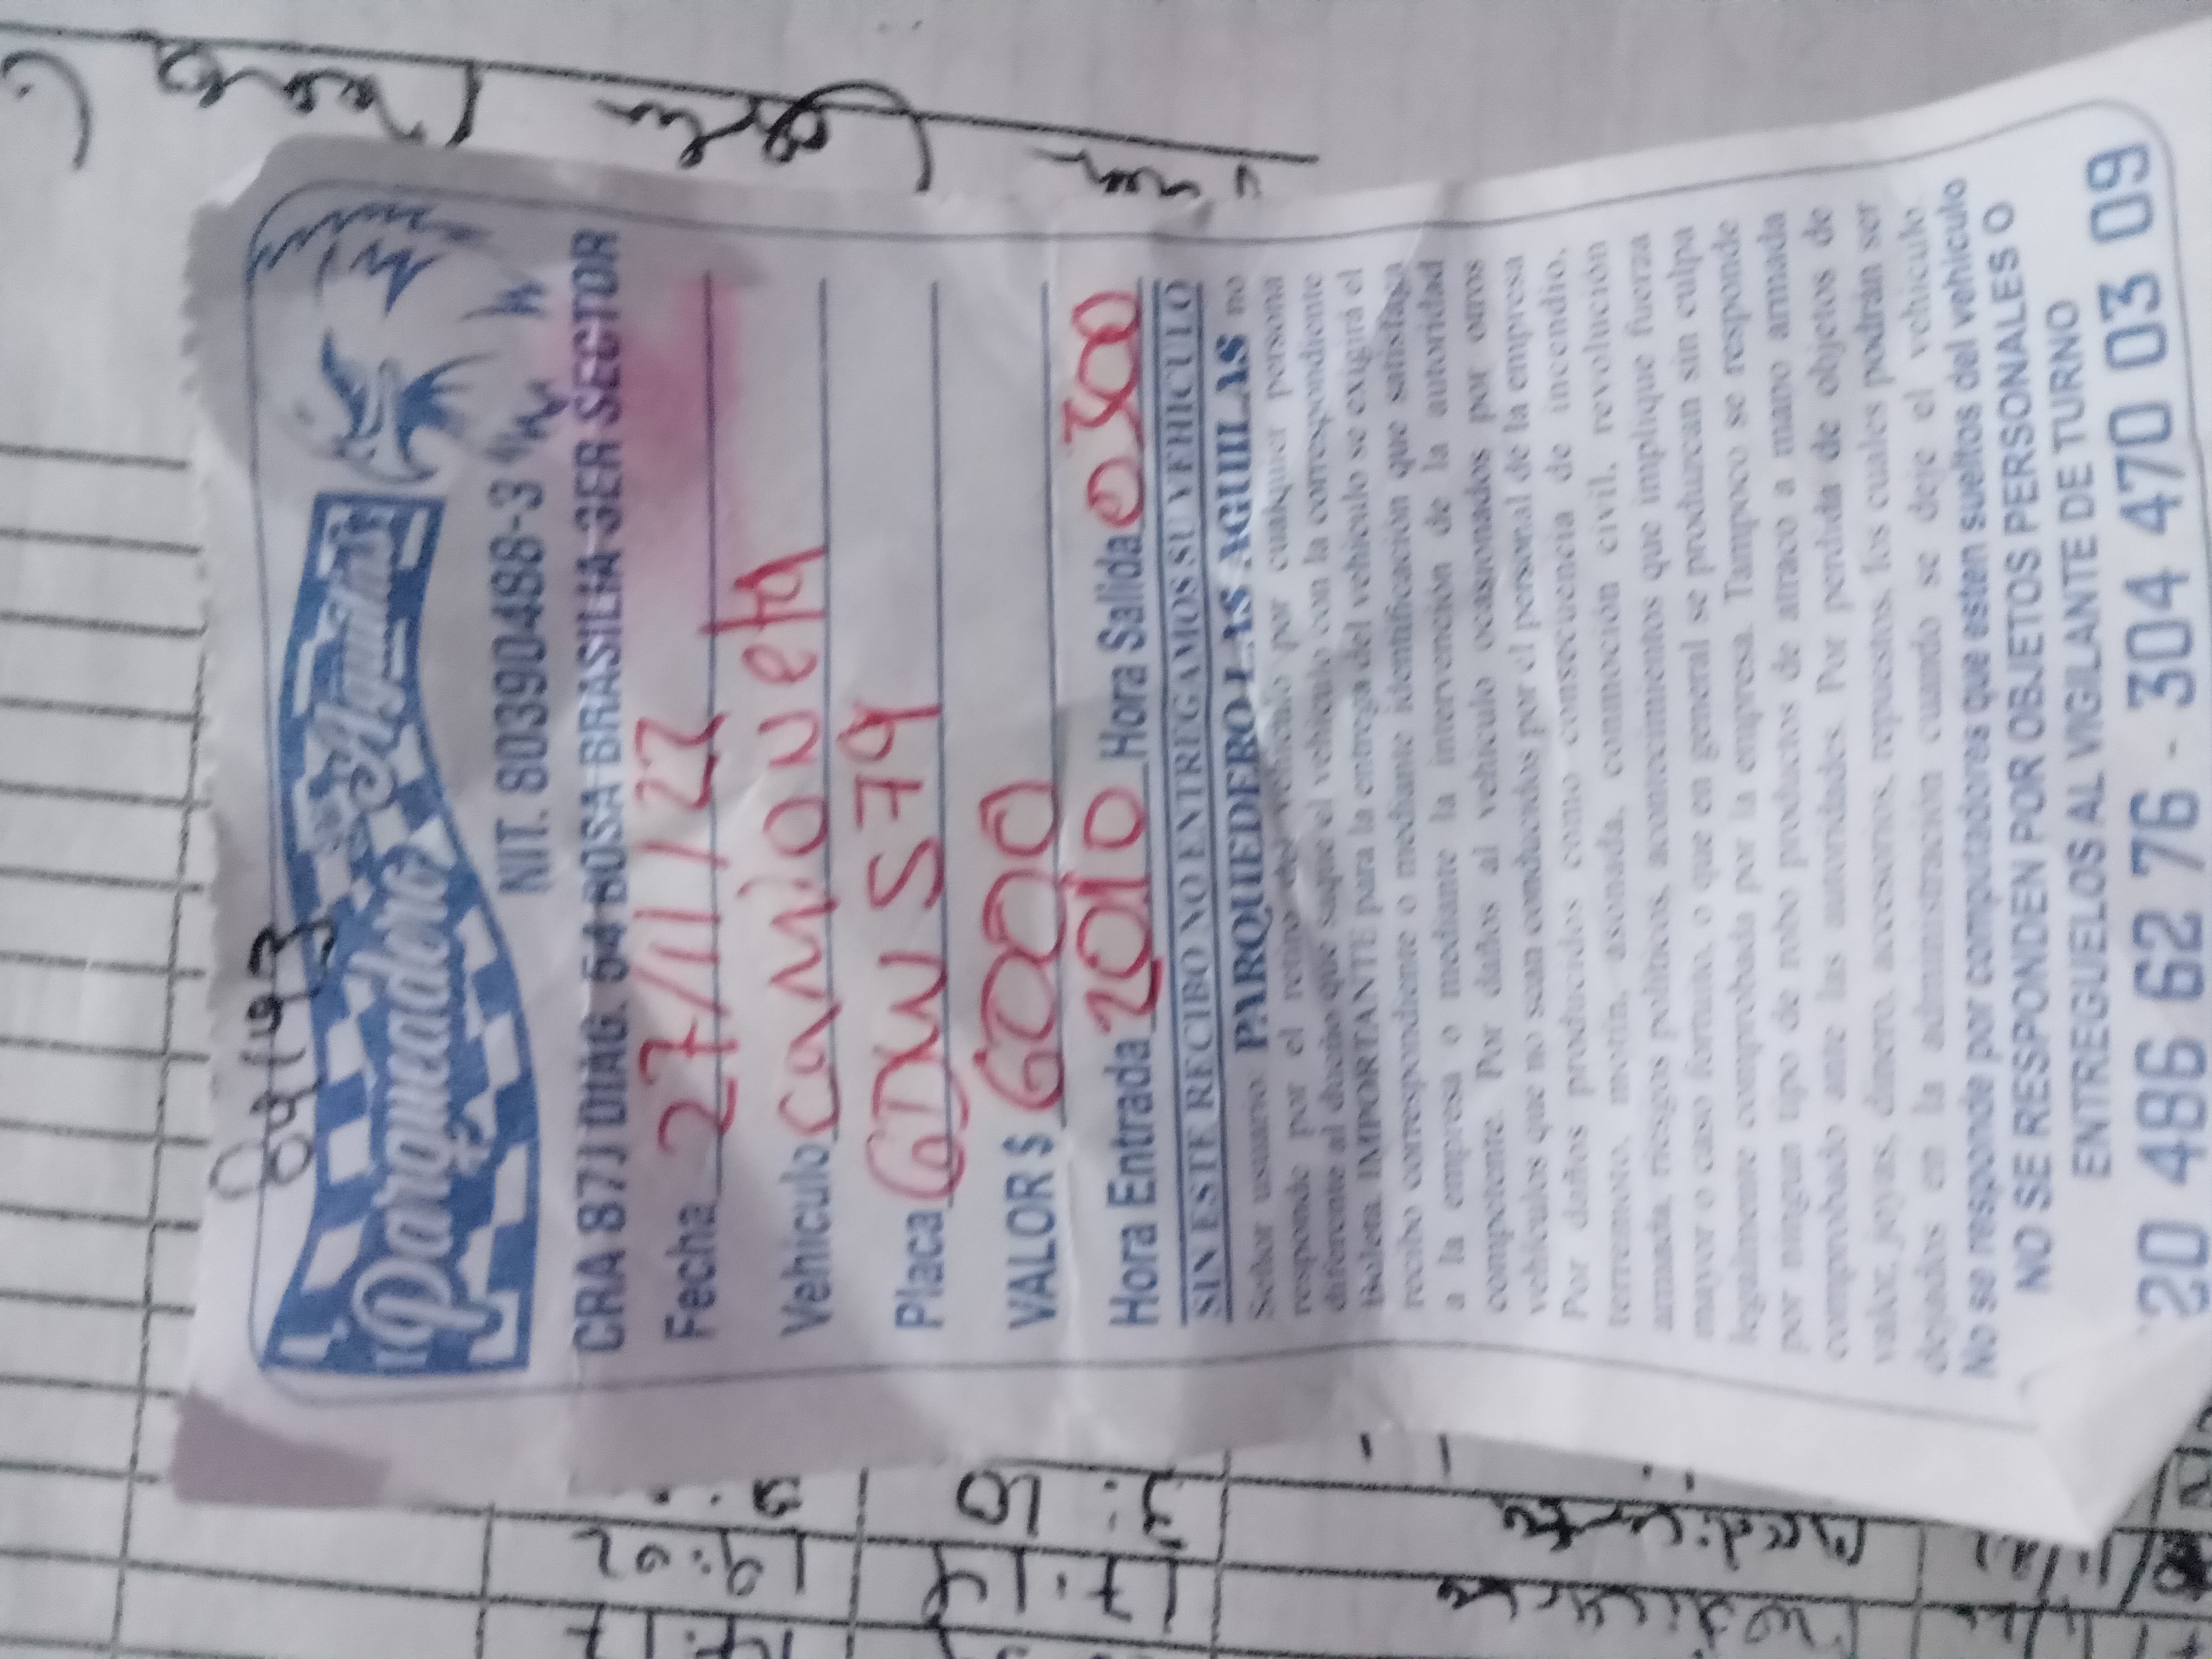 Parqueadero Las Aguilas
NIT. 80390488-3
CRA 87J DIAG. 54 BOSA BRASILIA SER SECTOR
Fecha 27/11/22
Vehículo camioneta
Placa GDW 579
VALOR $ 6000
Hora Entrada 2010 Hora Salida 0300
SIN ESTE RECIBO NO ENTREGAMOS SU VEHICULO
PARQUEDERO LAS AGUILAS no
responde por el retiro del vehículo por cualquier persona
diferente al dueño que saque el vehículo con la correspondiente
Boleta. IMPORTANTE para la entrega del vehículo se exigirá el
recibo correspondiente o mediante identificación que satisfaga
a la empresa o mediante la intervención de la autoridad
competente. Por daños al vehículo ocasionados por otros
vehículos que no sean conducidos por el personal de la empresa
Por daños producidos como consecuencia de incendio,
terremoto, motín, asonada, conmoción civil, revolución
armada, riesgos políticos, acontecimientos que implique fuerza
mayor o caso fortuito, o que en general se produzcan sin culpa
legalmente comprobada por la empresa. Tampoco se responde
por ningun tipo de robo productos de atraco a mano armada
comprobado ante las autoridades. Por perdida de objetos de
valor, joyas, dinero, accesorios, repuestos, los cuales podrán ser
dejados en la administración cuando se deje el vehículo.
No se responde por computadores que esten sueltos del vehículo
NO SE RESPONDEN POR OBJETOS PERSONALES O
ENTREGUELOS AL VIGILANTE DE TURNO
20 486 62 76 - 304 470 03 09
19:02
17:14